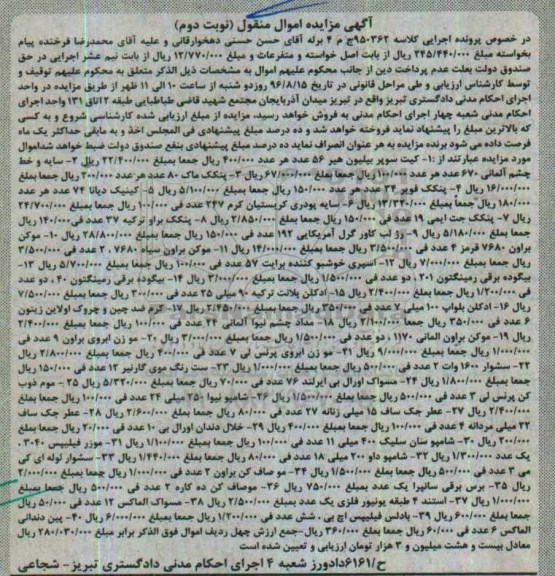 آگهی مزایده اموال منقول (نوبت دوم)
در خصوص پرونده اجرایی کلاسه ۹۵۰۳۶۲ج م ۴ برله آقای حسن حسنی دهخوارقانی و علیه آقای محمدرضا فرخنده پیام
بخواسته مبلغ ۲۴۵/۴۴۰/۰۰۰ ریال از بابت اصل خواسته و متفرعات و مبلغ ۱۲/۷۷۰/۰۰۰ ریال از بابت نیم عشر اجرایی در حق
صندوق دولت بعلت عدم پرداخت دین از جانب محکوم علیهم اموال به مشخصات ذیل الذکر متعلق به محکوم علیهم توقیف و
توسط کارشناس ارزیابی و طی مراحل قانونی در تاریخ ۹۶/۸/۱۵ روزدو شنبه از ساعت ۱۰ الی ۱۱ ظهر از طریق مزایده در واحد
اجرای احکام مدنی دادگستری تبریز واقع در تبریز میدان آذربایجان مجتمع شهید قاضی طباطبایی طبقه ۲ اتاق ۱۳۱ واحد اجرای
احکام مدنی شعبه چهار اجرای احکام مدنی به فروش خواهد رسید، مزایده از مبلغ ارزیابی شده کارشناسی شروع و به کسی
که بالاترین مبلغ را پیشنهاد نماید فروخته خواهد شد و ده درصد مبلغ پیشنهادی فی المجلس اخذ و به مابقی حداکثر یک ماه
فرصت داده می شود برنده مزایده به هر عنوان انصراف نماید ده درصد مبلغ پیشنهادی بنفع صندوق دولت ضبط خواهد شد اموال
مورد مزایده عبارتند از :۱- کیت سوپر بیلیون هیر ۵۶ عدد هر عدد ۴۰۰/۰۰۰ ریال جمعا بمبلغ ۲۲/۴۰۰/۰۰۰ ریال ۲- سایه و خط
چشم آلمانی ۶۷۰ عدد هر عدد ریال جمعا بمبلغ ۶۷/۰۰۰/۰۰۰ ریال ۳- پنکک ماک ۸۰ عدد هر عدد ۲۰۰/۰۰۰ ریال جمعا بمبلغ
۱۶/۰۰۰/۰۰۰ ریال ۴- پنکک فویر ۳۴ عدد هر عدد ۱۵۰/۰۰۰ ریال جمعا بمبلغ ۵/۱۰۰/۰۰۰ ریال ۵- کینیک دیانا ۷۴ عدد هر عدد
۱۸۰/۰۰۰ ریال جمعا بمبلغ ۱۳/۳۲۰/۰۰۰ ریال ۶- سایه پودری کریستیان کرم ۲۴۷ عدد فی ۱۰۰/۰۰۰ ریال جمعا بمبلغ ۲۴/۷۰۰/۰۰۰
ریال ۷- پنکک جت ایمی ۱۹ عدد فی ۱۵۰/۰۰۰ ریال جمعا بمبلغ ۲/۸۵۰/۰۰۰ ریال ۸- پنکک براو ترکیه ۳۷ عدد فی ۱۴۰/۰۰۰ ریال
جمعا بمبلغ ۵/۱۸۰/۰۰۰ ریال ۹- رژ لب کاور گرل آمریکایی ۱۹۲ عدد فی ۱۵۰/۰۰۰ ریال جمعا بمبلغ ۲۸/۸۰۰/۰۰۰ ریال ۱۰- موکن
براون ۷۶۸۰ قرمز ۴ عدد فی ۳/۵۰۰/۰۰۰ ریال جمعا بمبلغ ۱۴/۰۰۰/۰۰۰ ریال ۱۱- موکن براون سیاه ۷۶۸۰ ، ۲ عدد فی ۳/۵۰۰/۰۰۰
جمعا بمبلغ ۷/۰۰۰/۰۰۰ ریال ۱۲- اسپری خوشبو کننده برایت ۵۷ عدد فی ۱۰۰/۰۰۰ ریال جمعا بمبلغ ۵/۷۰۰/۰۰۰ ریال ۱۳-
بیگودی برقی رمینگتون ۲۰۱ ، دو عدد فی ۱/۵۰۰/۰۰۰ ریال جمعا بمبلغ ۳/۰۰۰/۰۰۰ ریال ۱۴- بیگودی برقی رمینگتون ۴۰ ، دو عدد
فی ۱/۲۰۰/۰۰۰ ریال جمعا بمبلغ ۲/۴۰۰/۰۰۰ ریال ۱۵- ادکلن پلانت ترکیه ۹۰ میلی ۲۵ عدد فی ۳۰۰/۰۰۰ ریال جمعا بمبلغ ۷/۵۰۰/۰۰۰
ریال ۱۶- ادکلن بلواپ ۱۰۰ میلی ۷ عدد فی ۳۵۰/۰۰۰ ریال جمعا بمبلغ ۲/۴۵۰/۰۰۰ ریال ۱۷- کرم ضد چین و چروک اولاین زیتون
۶ عدد فی ۳۵۰/۰۰۰ ریال جمعا ۲/۱۰۰/۰۰۰ ریال ۱۸- مداد چشم نیوا آلمانی ۲۴ عدد فی ۱۰۰/۰۰۰ ریال جمعا بمبلغ ۲/۴۰۰/۰۰۰
ریال ۱۹- موکن براون آلمانی ۱۱۷۰ ، دو عدد فی ۱/۵۰۰/۰۰۰ ریال جمعا بمبلغ ۳/۰۰۰/۰۰۰ ریال ۲۰- مو زن ابروی براون ۹ عدد فی
۱/۰۰۰/۰۰۰ ریال جمعا بمبلغ ۹/۰۰۰/۰۰۰ ریال ۲۱- مو زن ابروی پرنس لی ۷ عدد فی ۴۰۰/۰۰۰ ریال جمعا بمبلغ ۲/۸۰۰/۰۰۰ ریال
۲۲- سشوار ۱۶۰۰ وات ۲ عدد فی ۵۰۰/۰۰۰ ریال جمعا بمبلغ ۱/۰۰۰/۰۰۰ ریال ۲۳- ست رنگ موی گارنیر ۱۲ عدد فی ۱۵۰/۰۰۰ ریال
جمعا بمبلغ ۱/۸۰۰/۰۰۰ ریال ۲۴- مسواک اورال بی ایرلند ۷۶ عدد فی ۷۰/۰۰۰ ریال جمعا بمبلغ ۵/۳۲۰/۰۰۰ ریال ۲۵- موم ذوب
کن پرنس لی ۳ عدد فی ۵۰۰/۰۰۰ ریال جمعا بمبلغ ۱/۵۰۰/۰۰۰ ریال ۲۶- شامپو نیوا ۲۵۰ میلی ۲۴ عدد فی ۱۰۰/۰۰۰ ریال بمبلغ
۲/۴۰۰/۰۰۰ ریال ۲۷- عطر جک ساف ۱۵ میلی زنانه ۲۷ عدد فی ۸۰/۰۰۰ ریال جمعا بمبلغ ۲/۶۰۰/۰۰۰ ریال ۲۸- عطر جک ساف
۲۲ میلی مردانه ۴ عدد فی ۱۰۰/۰۰۰ ریال جمعا بمبلغ ۴۰۰/۰۰۰ ریال ۲۹- خلال دندان اورال بی ۱۰ عدد فی ۲۰/۰۰۰ ریال جمعا بمبلغ
۲۰۰/۰۰۰ ریال ۳۰- شامپو سان سلیک ۴۰۰ میلی ۱۱ عدد فی ۱۰۰/۰۰۰ ریال جمعا بمبلغ ۱/۱۰۰/۰۰۰ ریال ۳۱- موزر فیلیپس ۳۰۴۰ ،
یک عدد ۱/۳۰۰/۰۰۰ ریال ۳۲- شامپو داو ۲۰۰ میلی ۱۸ عدد فی ۸۰/۰۰۰ ریال جمعا بمبلغ ۱/۴۴۰/۰۰۰ ریال ۳۳- سشوار لوله ای کی
می ۳ عدد فی ۵۰۰/۰۰۰ ریال جمعا بمبلغ ۱/۵۰۰/۰۰۰ ریال ۳۴- مو صاف کن براون ۲ عدد فی ۱/۰۰۰/۰۰۰ ریال جمعا بمبلغ ۲/۰۰۰/۰۰۰
ریال ۳۵- برس برقی سانیرا یک عدد بمبلغ ۷۵۰/۰۰۰ ریال ۳۶- موصاف کن ده کاره ۲ عدد فی ۵۰۰/۰۰۰ ریال جمعا بمبلغ
۱/۰۰۰/۰۰۰ ریال ۳۷- استند ۴ طبقه یونیور فلزی یک عدد بمبلغ ۲/۵۰۰/۰۰۰ ریال ۳۸- مسواک الماکس ۱۲ عدد فی ۵۰/۰۰۰ ریال
جمعا بمبلغ ۶۰۰/۰۰۰ ریال ۳۹- پادلس فیلیپس اچ بی ، شش عدد فی ۱/۲۰۰/۰۰۰ ریال جمعا بمبلغ ۶/۰۰۰/۰۰۰ ریال ۴۰- بین دندانی
الماکس ۶ عدد فی ۶۰/۰۰۰ ریال جمعا بمبلغ ۳۶۰/۰۰۰ ریال-جمع ارزش چهل ردیف اموال فوق الذکر برابر مبلغ ۲۸۰/۰۳۰/۰۰۰ ریال
معادل بیست و هشت میلیون و ۳ هزار تومان ارزیابی و تعیین شده است
ح/۶۱۶۱ دادورز شعبه ۴ اجرای احکام مدنی دادگستری تبریز- شجاعی